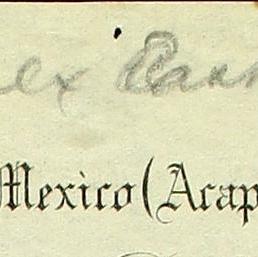 ex East
Mexico (Acap